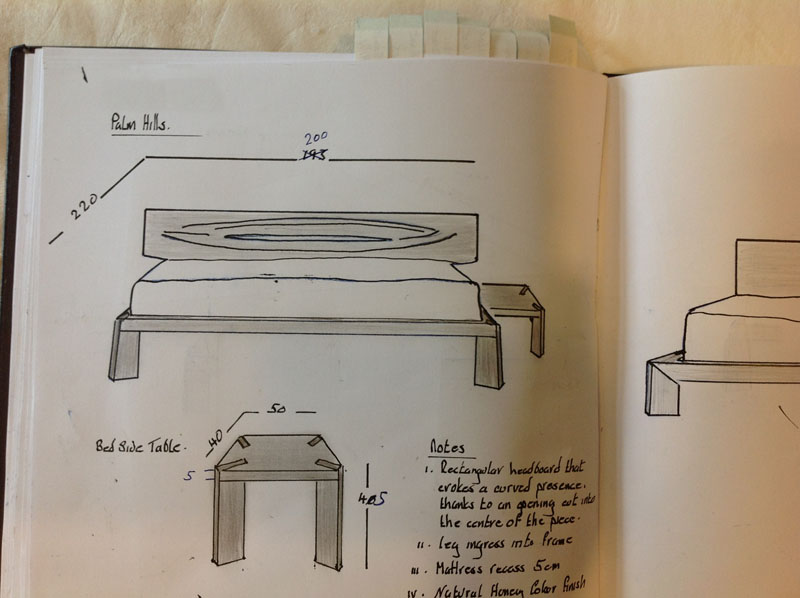 Palm Hills.
200
195
220
50
Bed Side Table.
40
5
45
Notes
i. Rectangular headboard that
evokes a curved presence.
thanks to an opening cut into
the centre of the piece.
ii. Leg ingress into frame
iii. Mattress recess 5cm
iv. Natural Honey Color finish